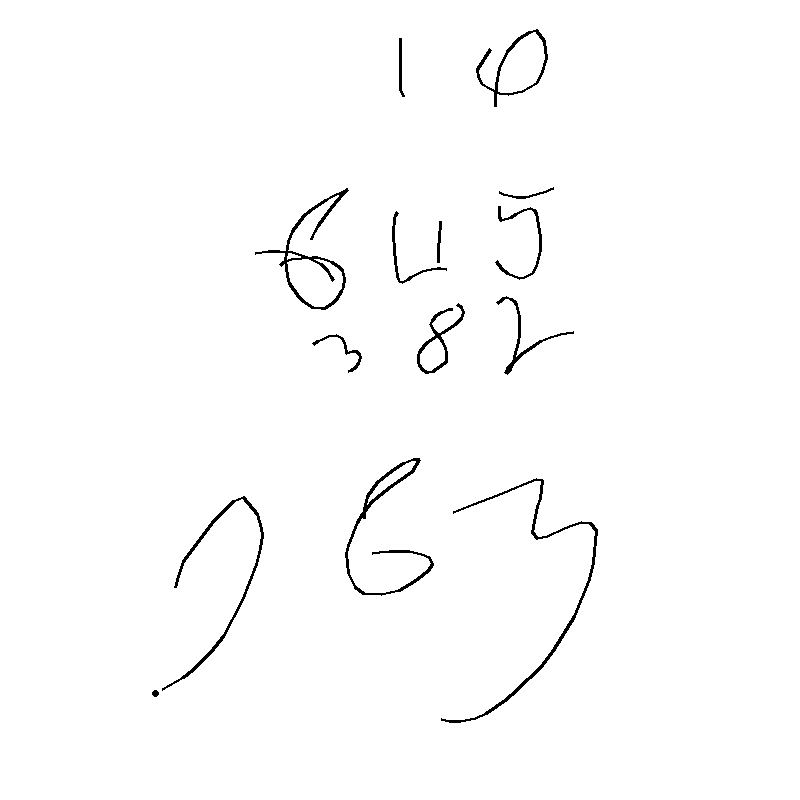 1
645
382
63